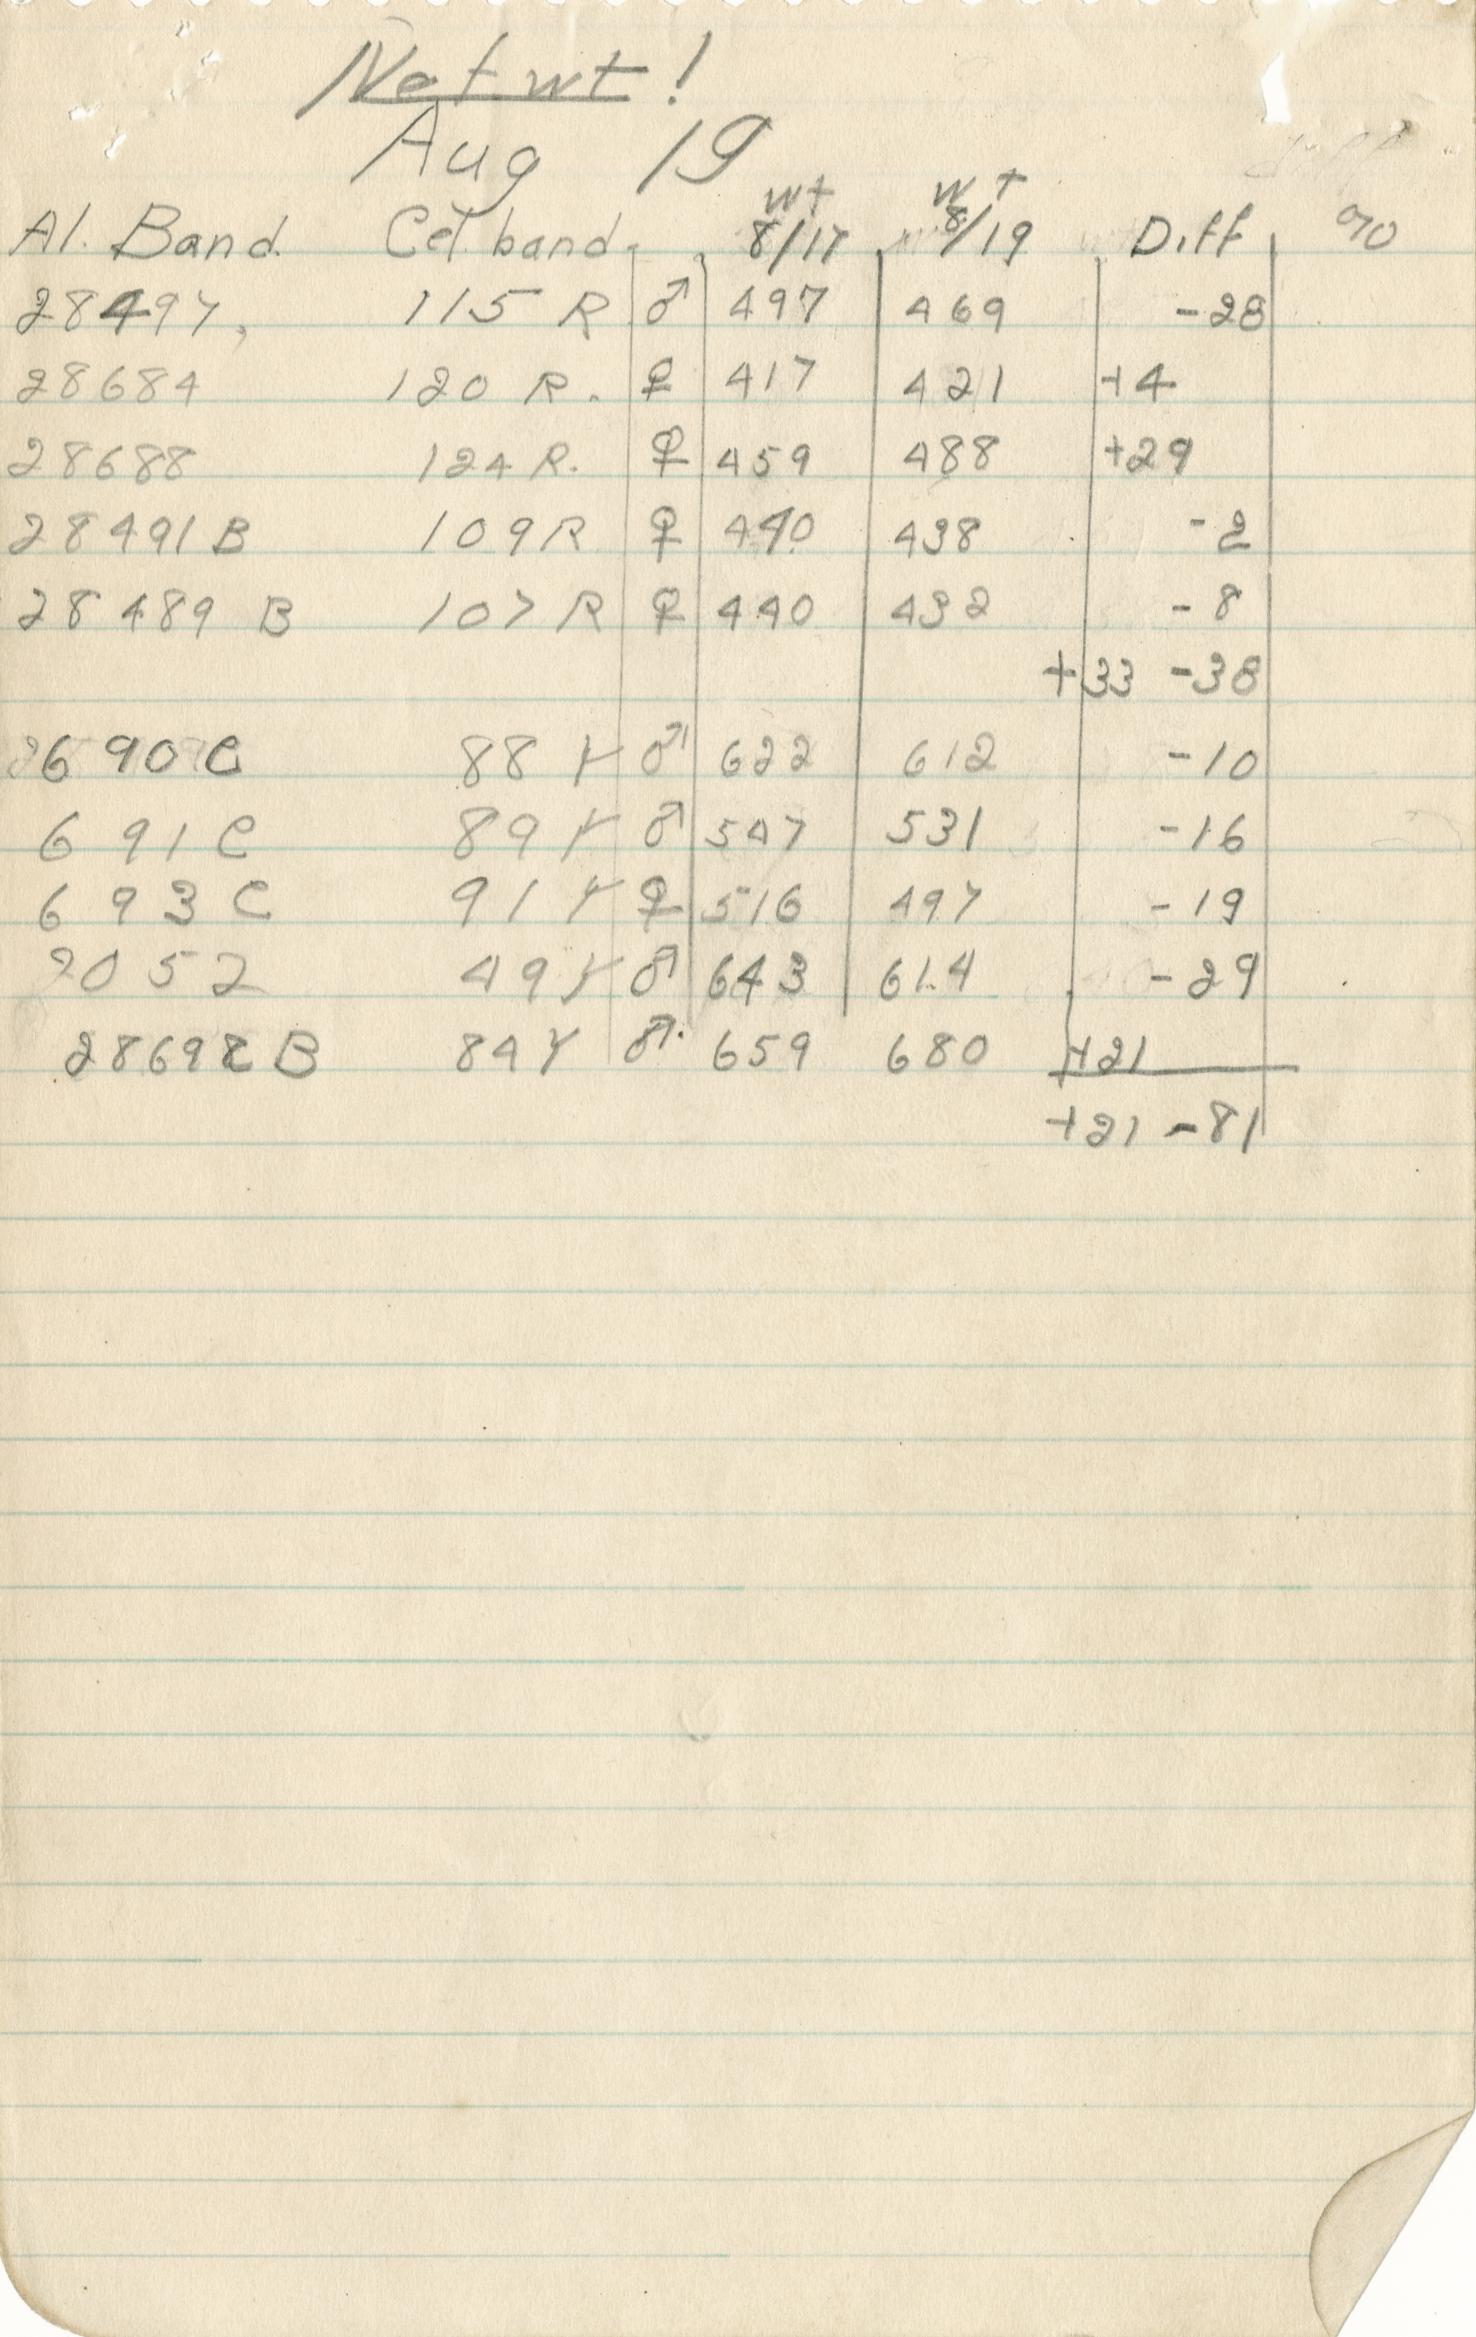 Net wt!
Aug 19
Al. Band Cel band wt 8/17 wt 8/19 Diff %
28497, 115 R ♂ 497 469 -28
28684 120 R. ♀ 417 421 +4
28688 124 R. ♀ 459 488 +29
28491 B 109 R ♀ 440 438 -2
28489 B 107 R ♀ 440 432 -8
+33 -38
690 C 88 Y ♂ 622 612 -10
691 C 89 Y ♂ 547 531 -16
693 C 91 Y ♀ 516 497 -19
2052 49 Y ♂ 643 614 -29
B 84 Y ♂ 659 680 +21
+21 -81